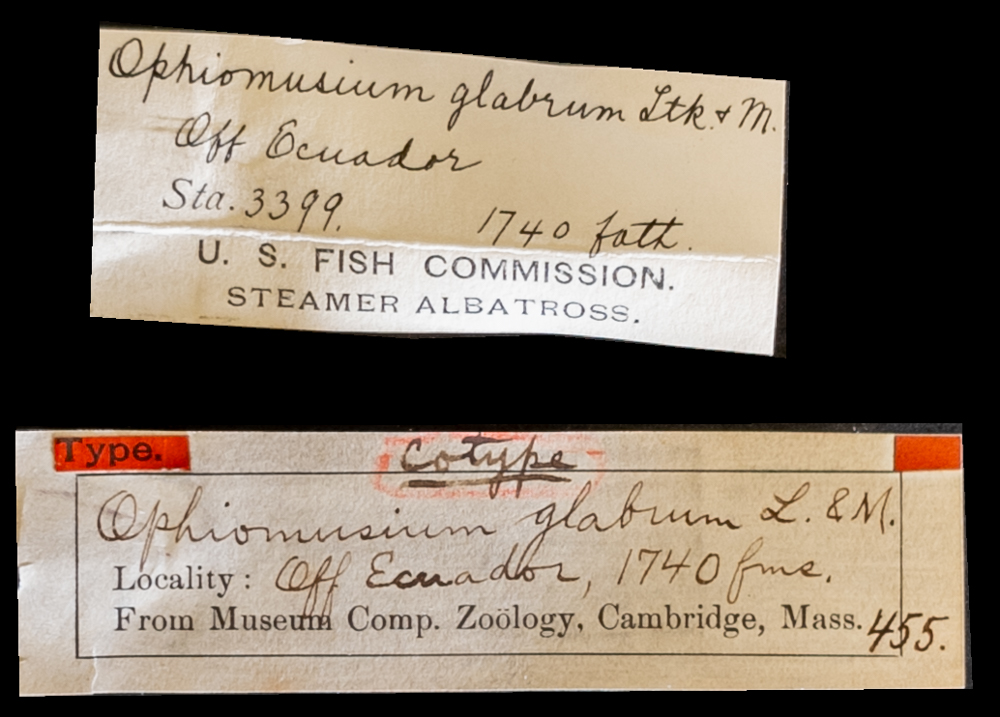 Ophiomusium glabrum Ltk. & M.
Off Ecuador
Sta. 3399. 1740 fath.
U. S. FISH COMMISSION.
STEAMER ALBATROSS.
Type. Cotype
Ophiomusium glabrum L. & M.
Locality: Off Ecuador, 1740 fms.
From Museum Comp. Zoölogy, Cambridge, Mass. 455.